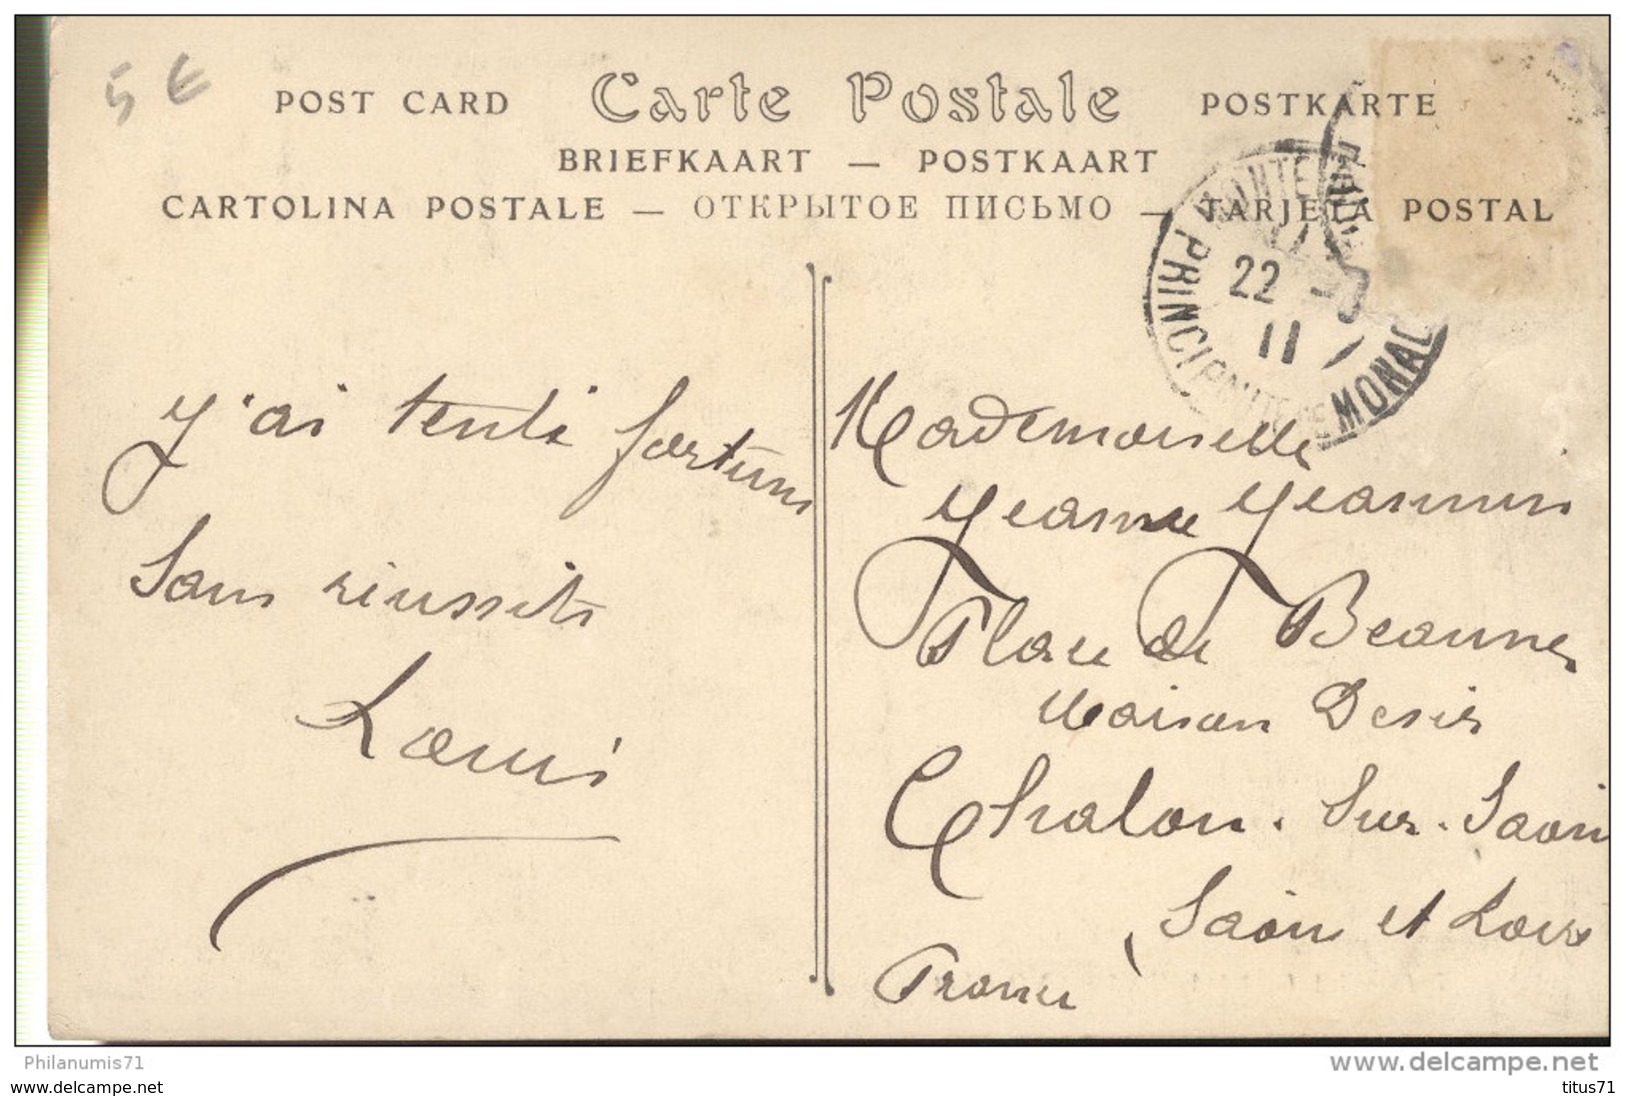 5 €
POST CARD Carte Postale POSTKARTE
BRIEFKAART — POSTKAART
CARTOLINA POSTALE — ОТКРЫТОЕ ПИСЬМО — TARJETA POSTAL
MONTE
22
11
PRINCIPAUTE DE MONACO
J'ai tenté fortune
Sans réussite
Louis
Mademoiselle
Jeanne Jeannin
Place de Beaune
Maison
Chalon. Sur. Saône
Saône et Loire
France
Philanumis71
www.delcampe.net
www.delcampe.net
titus71